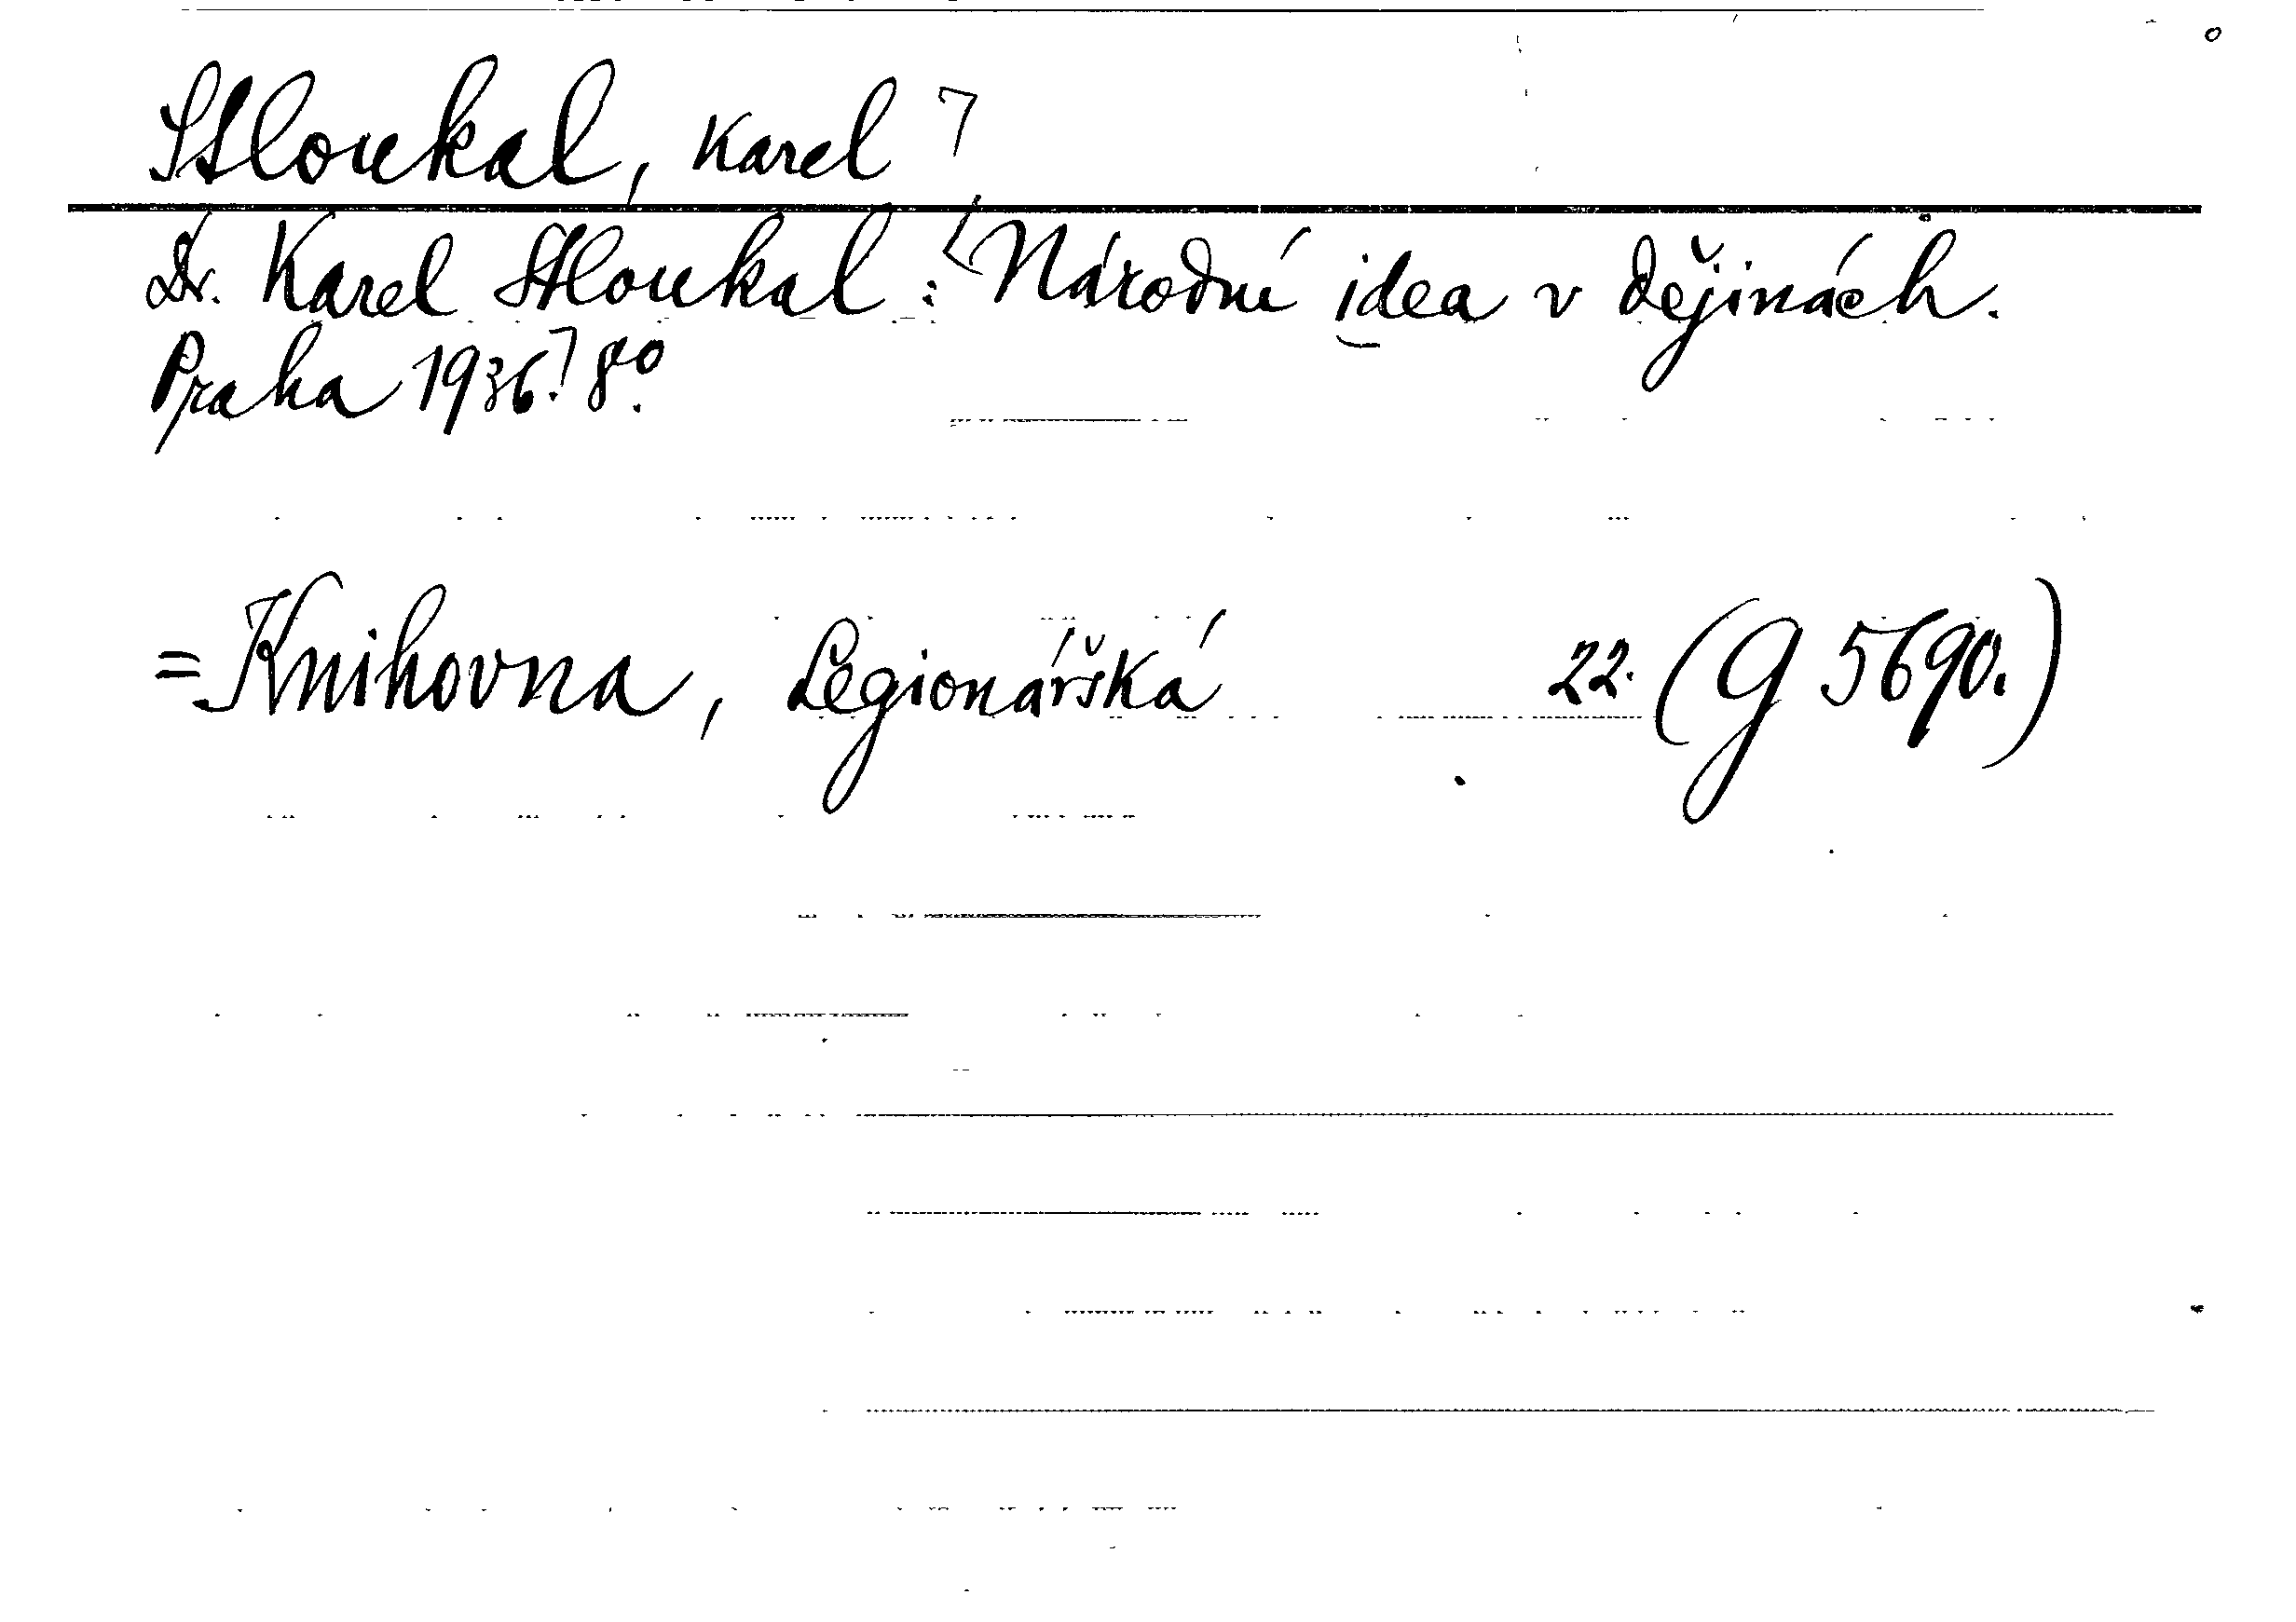 Stloukal, Karel
Dr. Karel Stloukal: Národní idea v dějinách.
Praha 1936. 8°.
= Knihovna, Legionářská 22. (G 5690.)